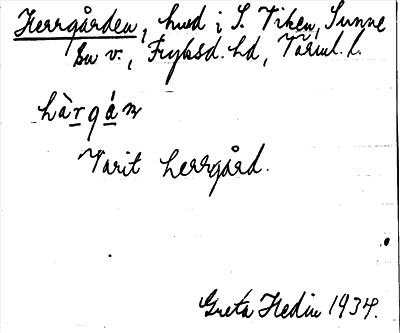 Herrgården, hmd i S. Viken, Sunne
sn v., Fryksd. hd, Värml. l.
hàrgán
Varit herrgård.
Greta Hedin 1934.